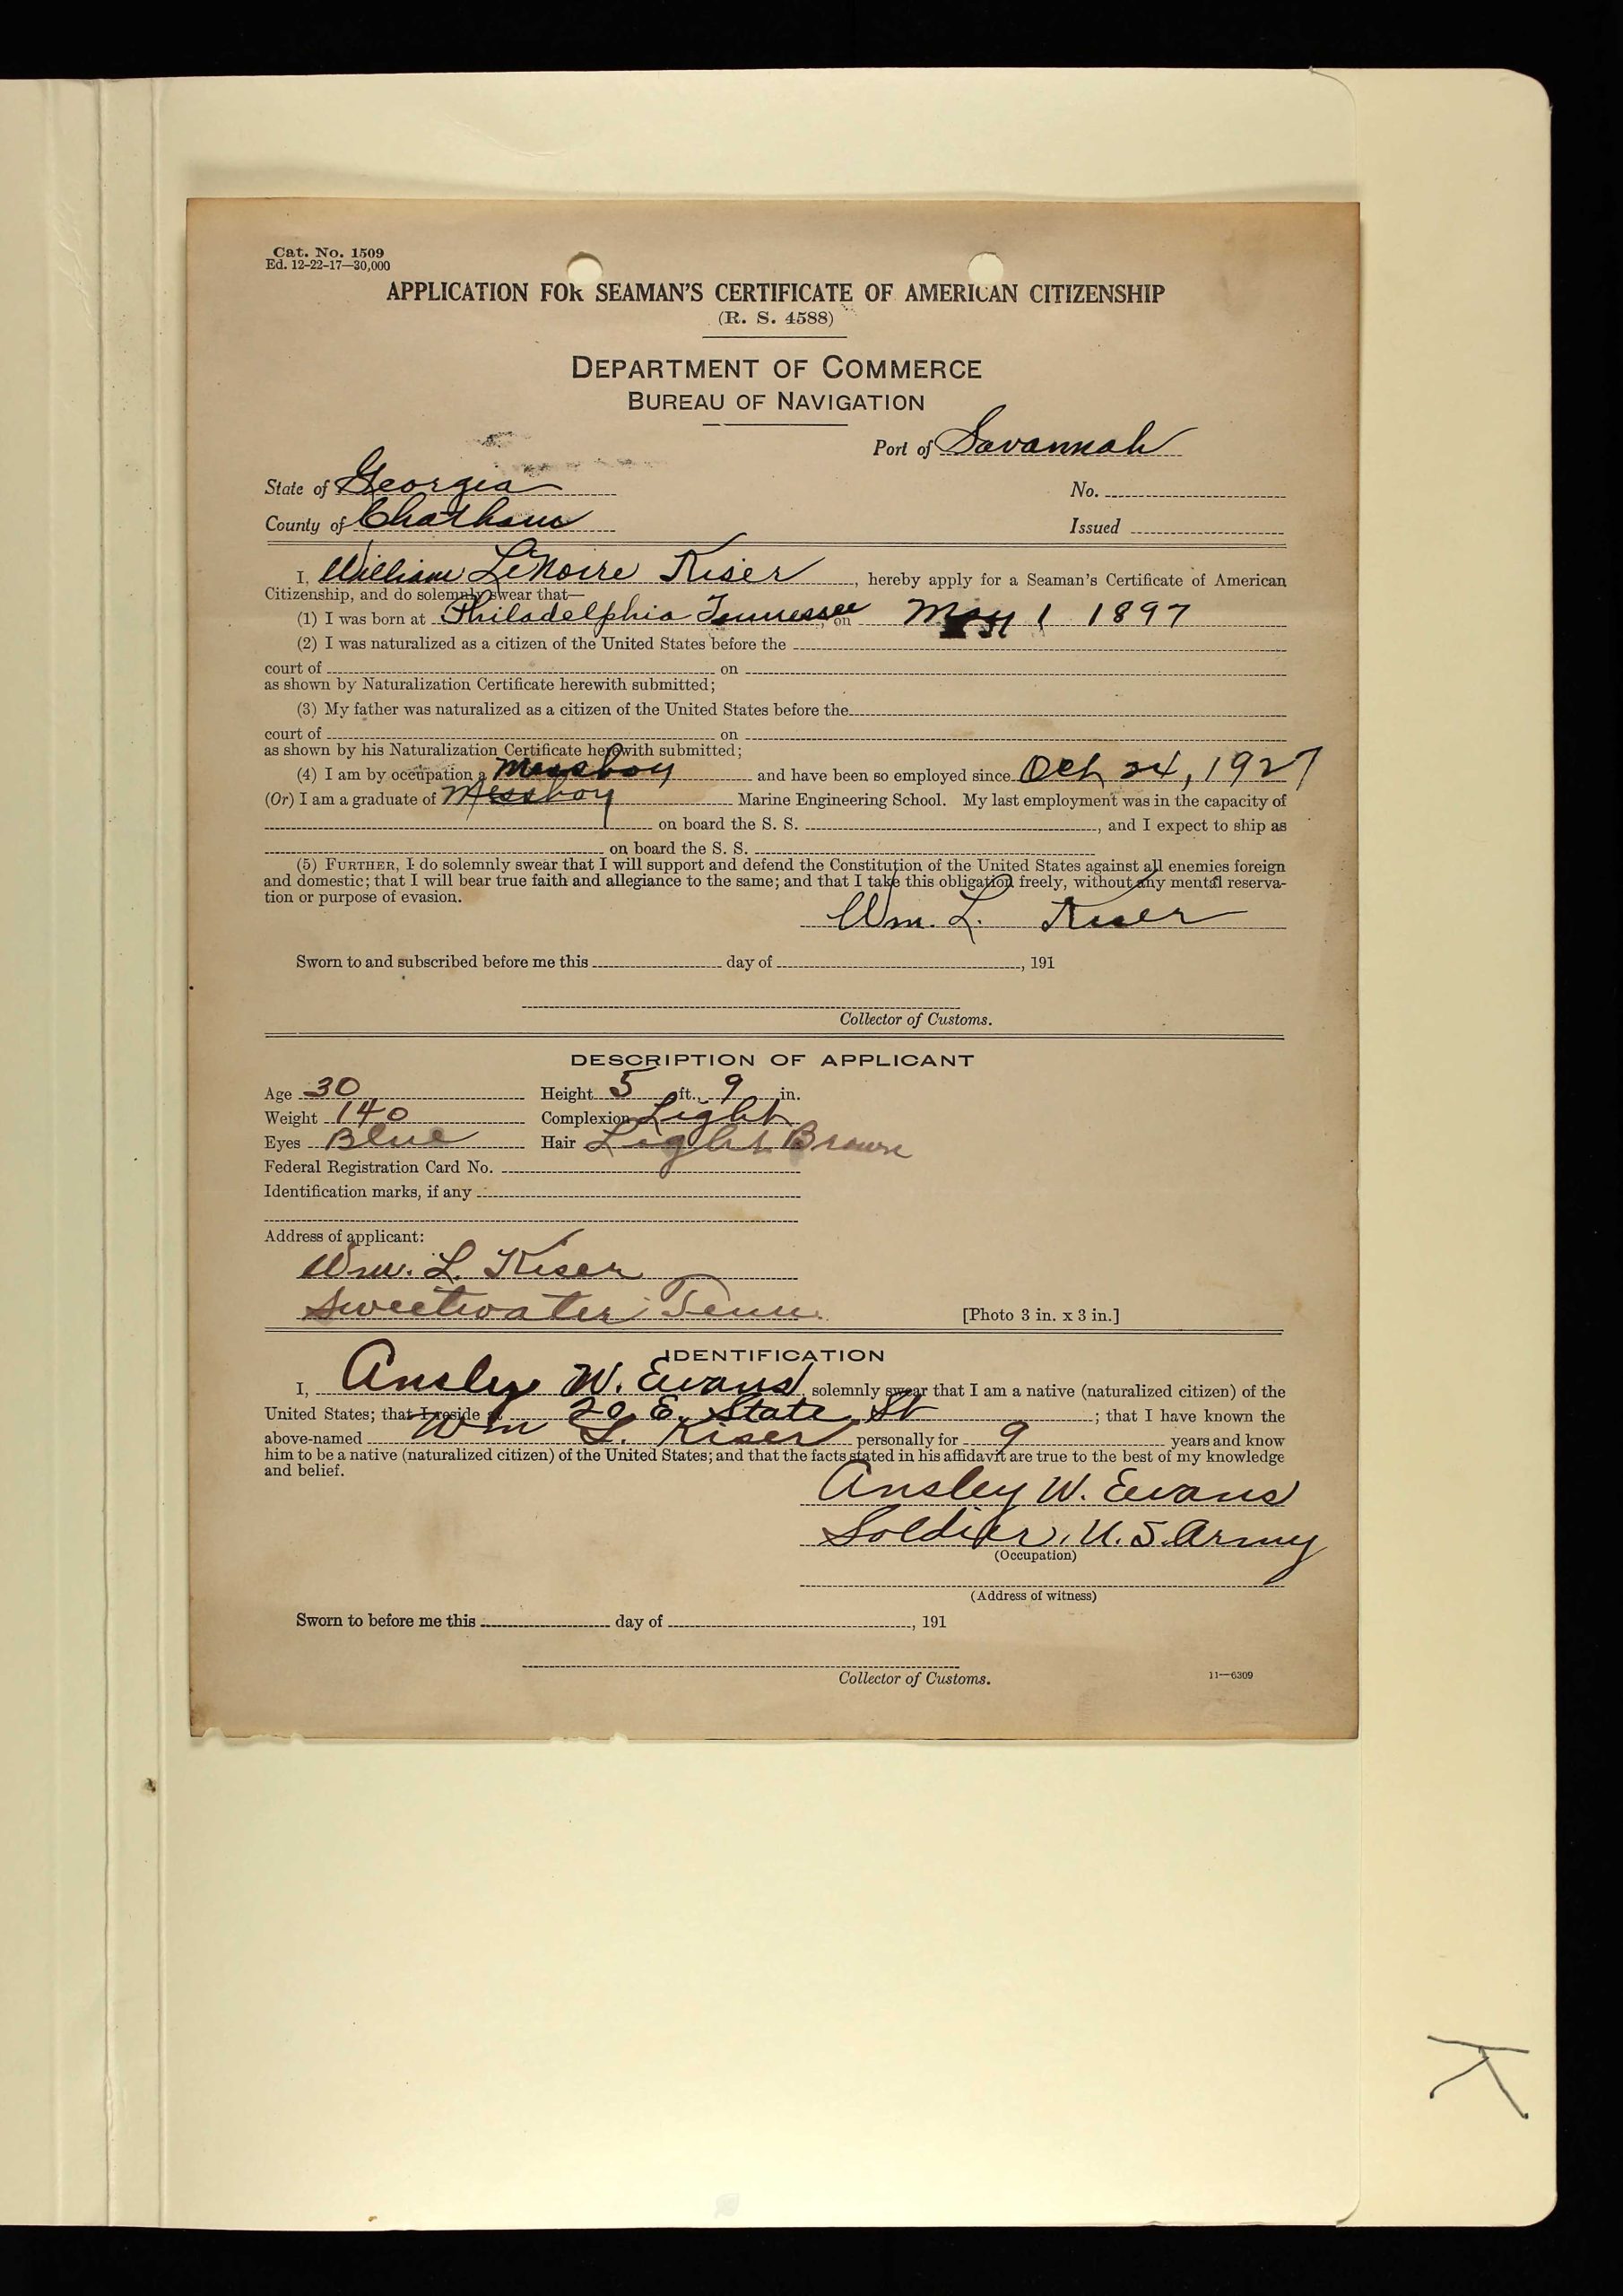 Cat. No. 1509
Ed. 12-22-17—30,000
APPLICATION FOR SEAMAN'S CERTIFICATE OF AMERICAN CITIZENSHIP
(R. S. 4588)
DEPARTMENT OF COMMERCE
BUREAU OF NAVIGATION
Port of Savannah
State of Georgia No.
County of Chatham Issued
I, William LeNoire Kiser, hereby apply for a Seaman's Certificate of American
Citizenship, and do solemnly swear that—
(1) I was born at Philadelphia Tennessee, on May 1 1897
(2) I was naturalized as a citizen of the United States before the
court of on
as shown by Naturalization Certificate herewith submitted;
(3) My father was naturalized as a citizen of the United States before the
court of on
as shown by his Naturalization Certificate herewith submitted;
(4) I am by occupation a Messboy and have been so employed since Oct 24, 1927
(Or) I am a graduate of Messboy Marine Engineering School. My last employment was in the capacity of
on board the S. S. , and I expect to ship as
on board the S. S.
(5) FURTHER, I do solemnly swear that I will support and defend the Constitution of the United States against all enemies foreign
and domestic; that I will bear true faith and allegiance to the same; and that I take this obligation freely, without any mental reserva-
tion or purpose of evasion.
Wm. L. Kiser
Sworn to and subscribed before me this day of , 191
Collector of Customs.
DESCRIPTION OF APPLICANT
Age 30 Height 5 ft. 9 in.
Weight 140 Complexion Light
Eyes Blue Hair Light Brown
Federal Registration Card No.
Identification marks, if any
Address of applicant:
Wm. L. Kiser
Sweetwater Tenn. [Photo 3 in. x 3 in.]
IDENTIFICATION
I, Ansley W. Evans, solemnly swear that I am a native (naturalized citizen) of the
United States; that I reside at 20 E. State St ; that I have known the
above-named Wm L. Kiser personally for 9 years and know
him to be a native (naturalized citizen) of the United States; and that the facts stated in his affidavit are true to the best of my knowledge
and belief.
Ansley W. Evans
Soldier, U. S. Army
(Occupation)
(Address of witness)
Sworn to before me this day of , 191
Collector of Customs. 11—6309
K